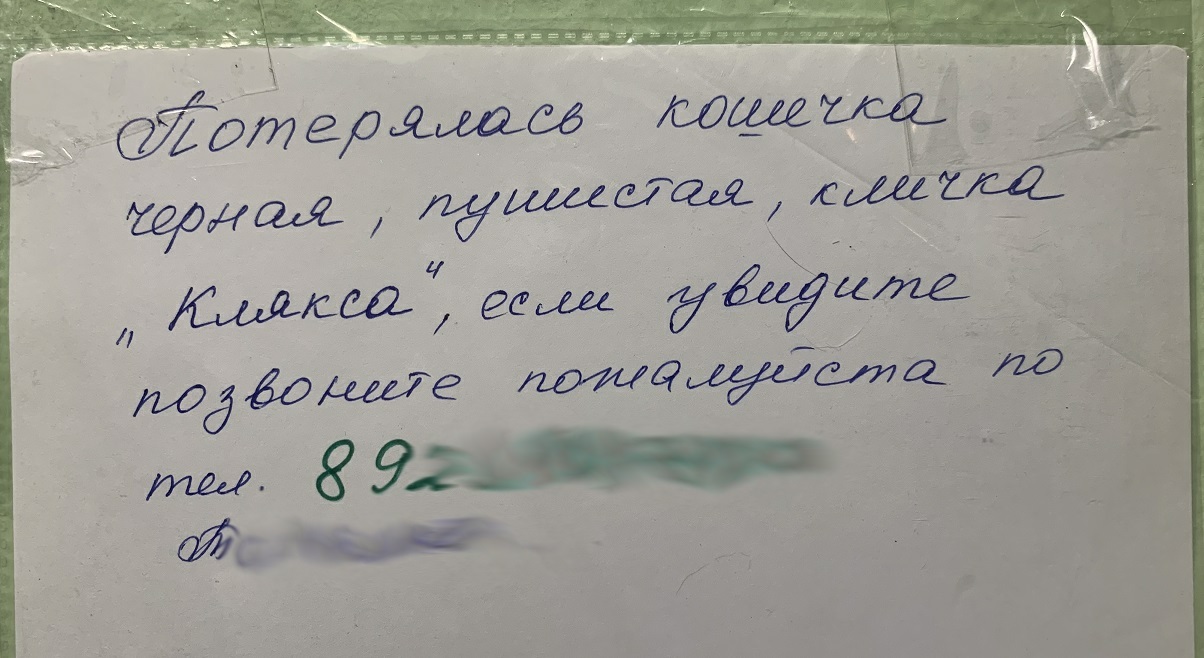 Потерялась кошечка
черная, пушистая, кличка
„Клякса“, если увидите
позвоните пожалуйста по
тел. 892